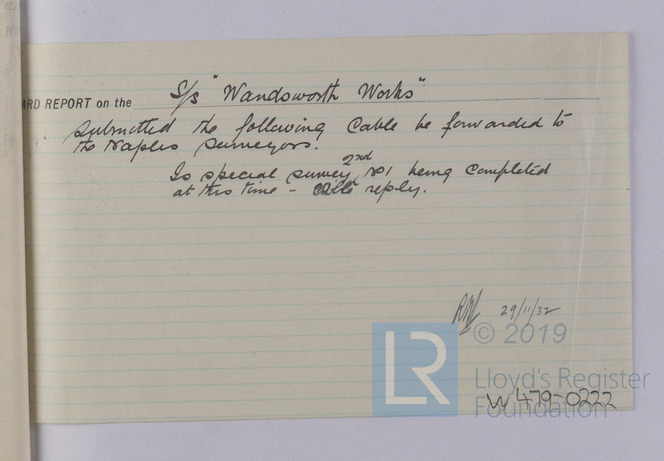 ARD REPORT on the S/s "Wandsworth Works"
Submitted the following Cable be forwarded to
the Naples Surveyors.
2nd
Is special survey No1 being completed
at this time - cable reply.
29/11/32
© 2019
LR
Lloyd's Register
Foundation
W479-0222